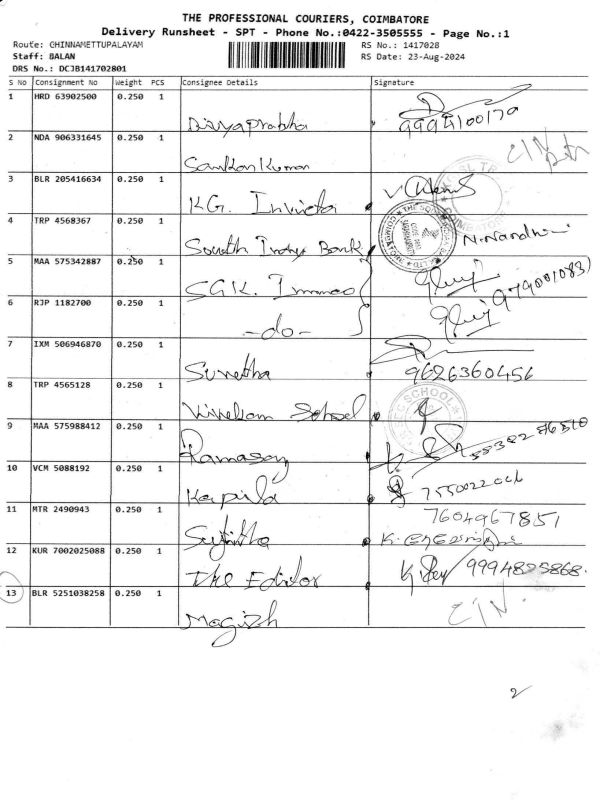 THE PROFESSIONAL COURIERS, COIMBATORE
Delivery Runsheet - SPT - Phone No.:0422-3505555 - Page No.:1
Route: CHINNAMETTUPALAYAM RS No.: 1417028
Staff: BALAN RS Date: 23-Aug-2024
DRS No.: DCJB141702801
S No Consignment No Weight PCS Consignee Details Signature
1 HRD 63902500 0.250 1 Divyaprabha
2 NDA 906331645 0.250 1 Sankar Kumar
3 BLR 205416634 0.250 1 KG. Invicta
4 TRP 4568367 0.250 1 South Indya Bank
5 MAA 575342887 0.250 1 SGK.
6 RJP 1182700 0.250 1 -do-
7 IXM 506946870 0.250 1 9626360456
8 TRP 4565128 0.250 1 SCHOOL
9 MAA 575988412 0.250 1 Ramasamy
10 VCM 5088192 0.250 1 Kapila
11 MTR 2490943 0.250 1 Sujitha 7604967851
12 KUR 7002025088 0.250 1 The Editor 9994825868.
13 BLR 5251038258 0.250 1 Magizh
2